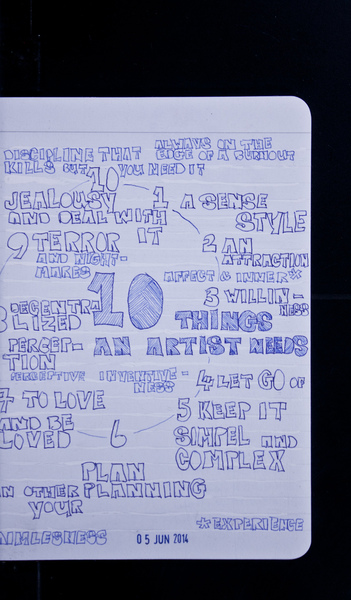 DISCIPLINE THAT
KILLS BUT YOU NEED IT
ALWAYS ON THE
EDGE OF A BURNOUT
10
JEALOUSY
AND DEAL WITH
IT
1 A SENSE
STYLE
9 TERROR
AND NIGHT-
MARES
2 AN
ATTRACTION
AFFECT & INNER*
3 WILLIN-
NESS
10
THINGS
AN ARTIST NEEDS
DECENTRA
LIZED
PERCEP-
TION
INVENTIVE-
NESS
4 LET GO OF
7 TO LOVE
AND BE
LOVED
5 KEEP IT
SIMPEL AND
COMPLEX
6
PLAN
IN OTHER PLANNING
YOUR
AIMLESNESS
05 JUN 2014
*EXPERIENCE